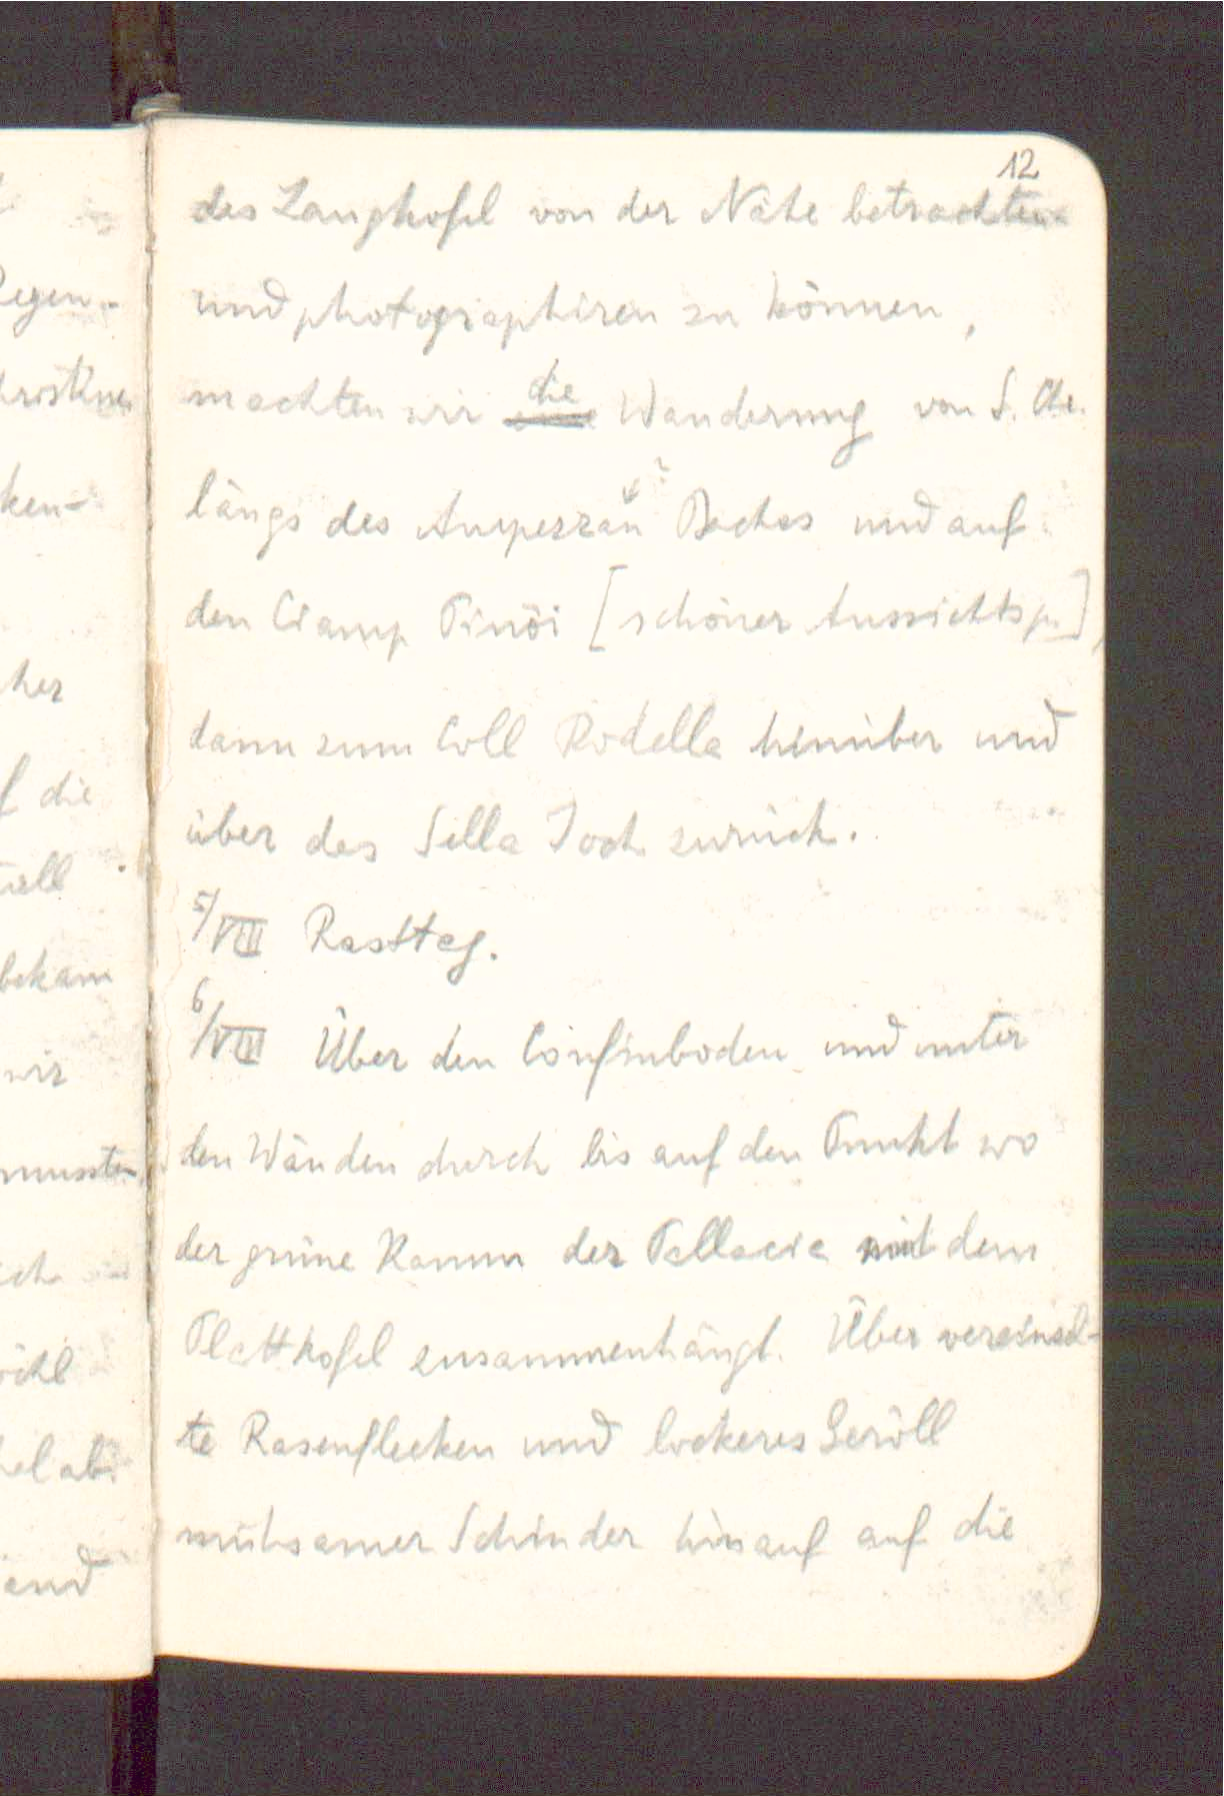 12
des Langkofel von der Nähe betrachten
und photographiren zu können,
machten wir die Wanderung von S. Chr.
längs des Ampezzan ? Baches und auf
den Ciamp Pinöi [schöner Aussichtsp.],
dann zum Coll Rodella hinüber und
über das Sella Joch zurück.
5/VIII Rasttag.
6/VIII Über den Confinboden und unter
den Wänden durch bis auf den Punkt wo
der grüne Kamm der Pallacia mit dem
Plattkofel zusammenhängt. Über vereinzel-
te Rasenflecken und lockeres Geröll
mühsamer Schinder hinauf auf die
Regen-
ken-
her
f die
bekam
wir
mussten